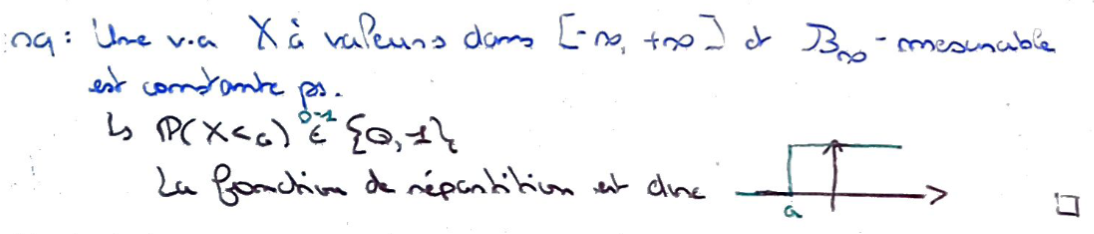 rq : Une v.a X à valeurs dans [-∞, +∞] et B∞-mesurable
est constante ps.
↳ P(X<a) ∈ {0,1}
0-1
La fonction de répartition est donc
a
□